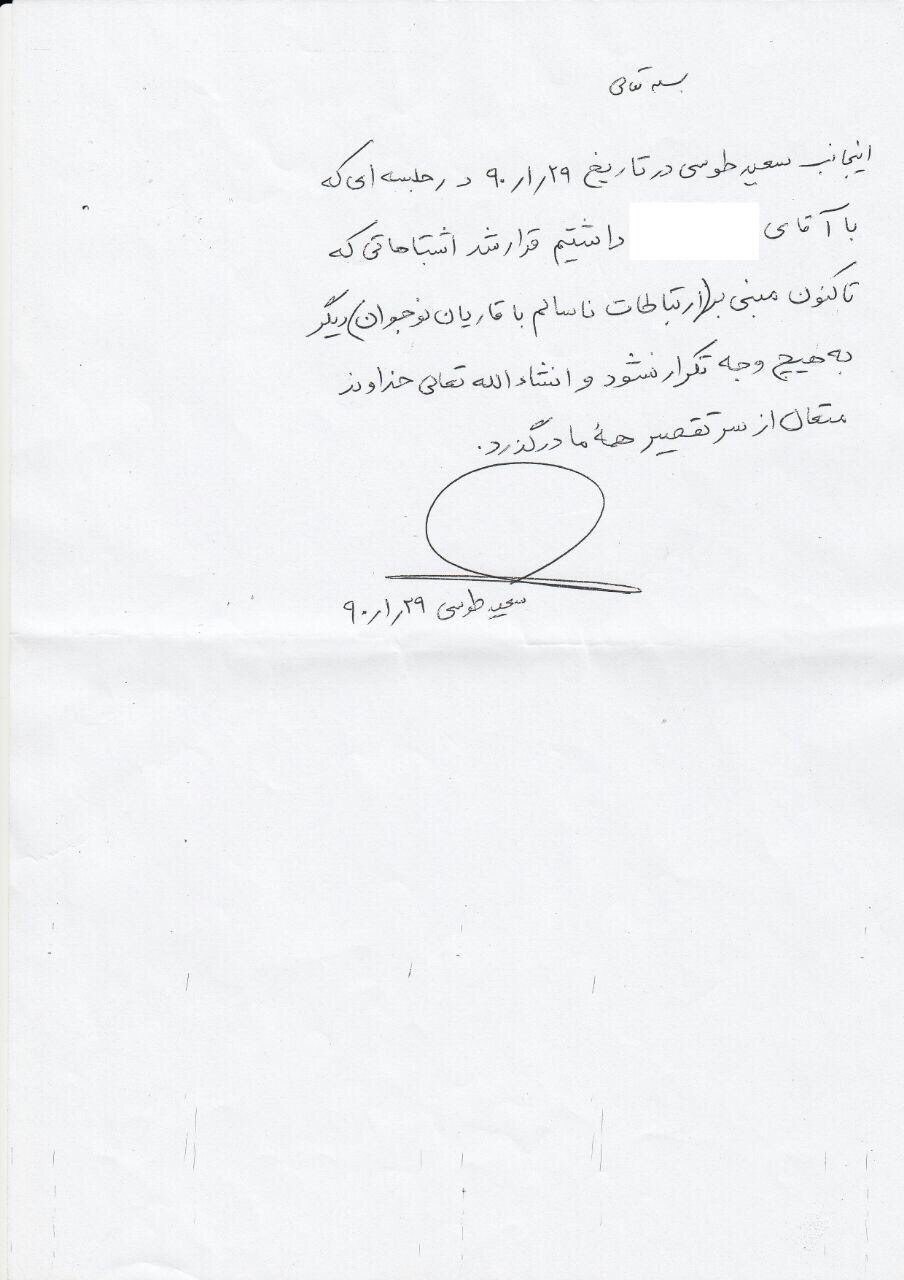 بسمه تعالی
اینجانب سعید طوسی در تاریخ ۲۹ر۱ر۹۰ در جلسه ای که
با آقای داشتیم قرار شد اشتباهاتی که
تاکنون مبنی بر (ارتباطات ناسالم با قاریان نوجوان) دیگر
به هیچ وجه تکرار نشود و انشاء الله تعالی خداوند
متعال از سر تقصیر همهٔ ما درگذرد.
سعید طوسی ۲۹ر۱ر۹۰